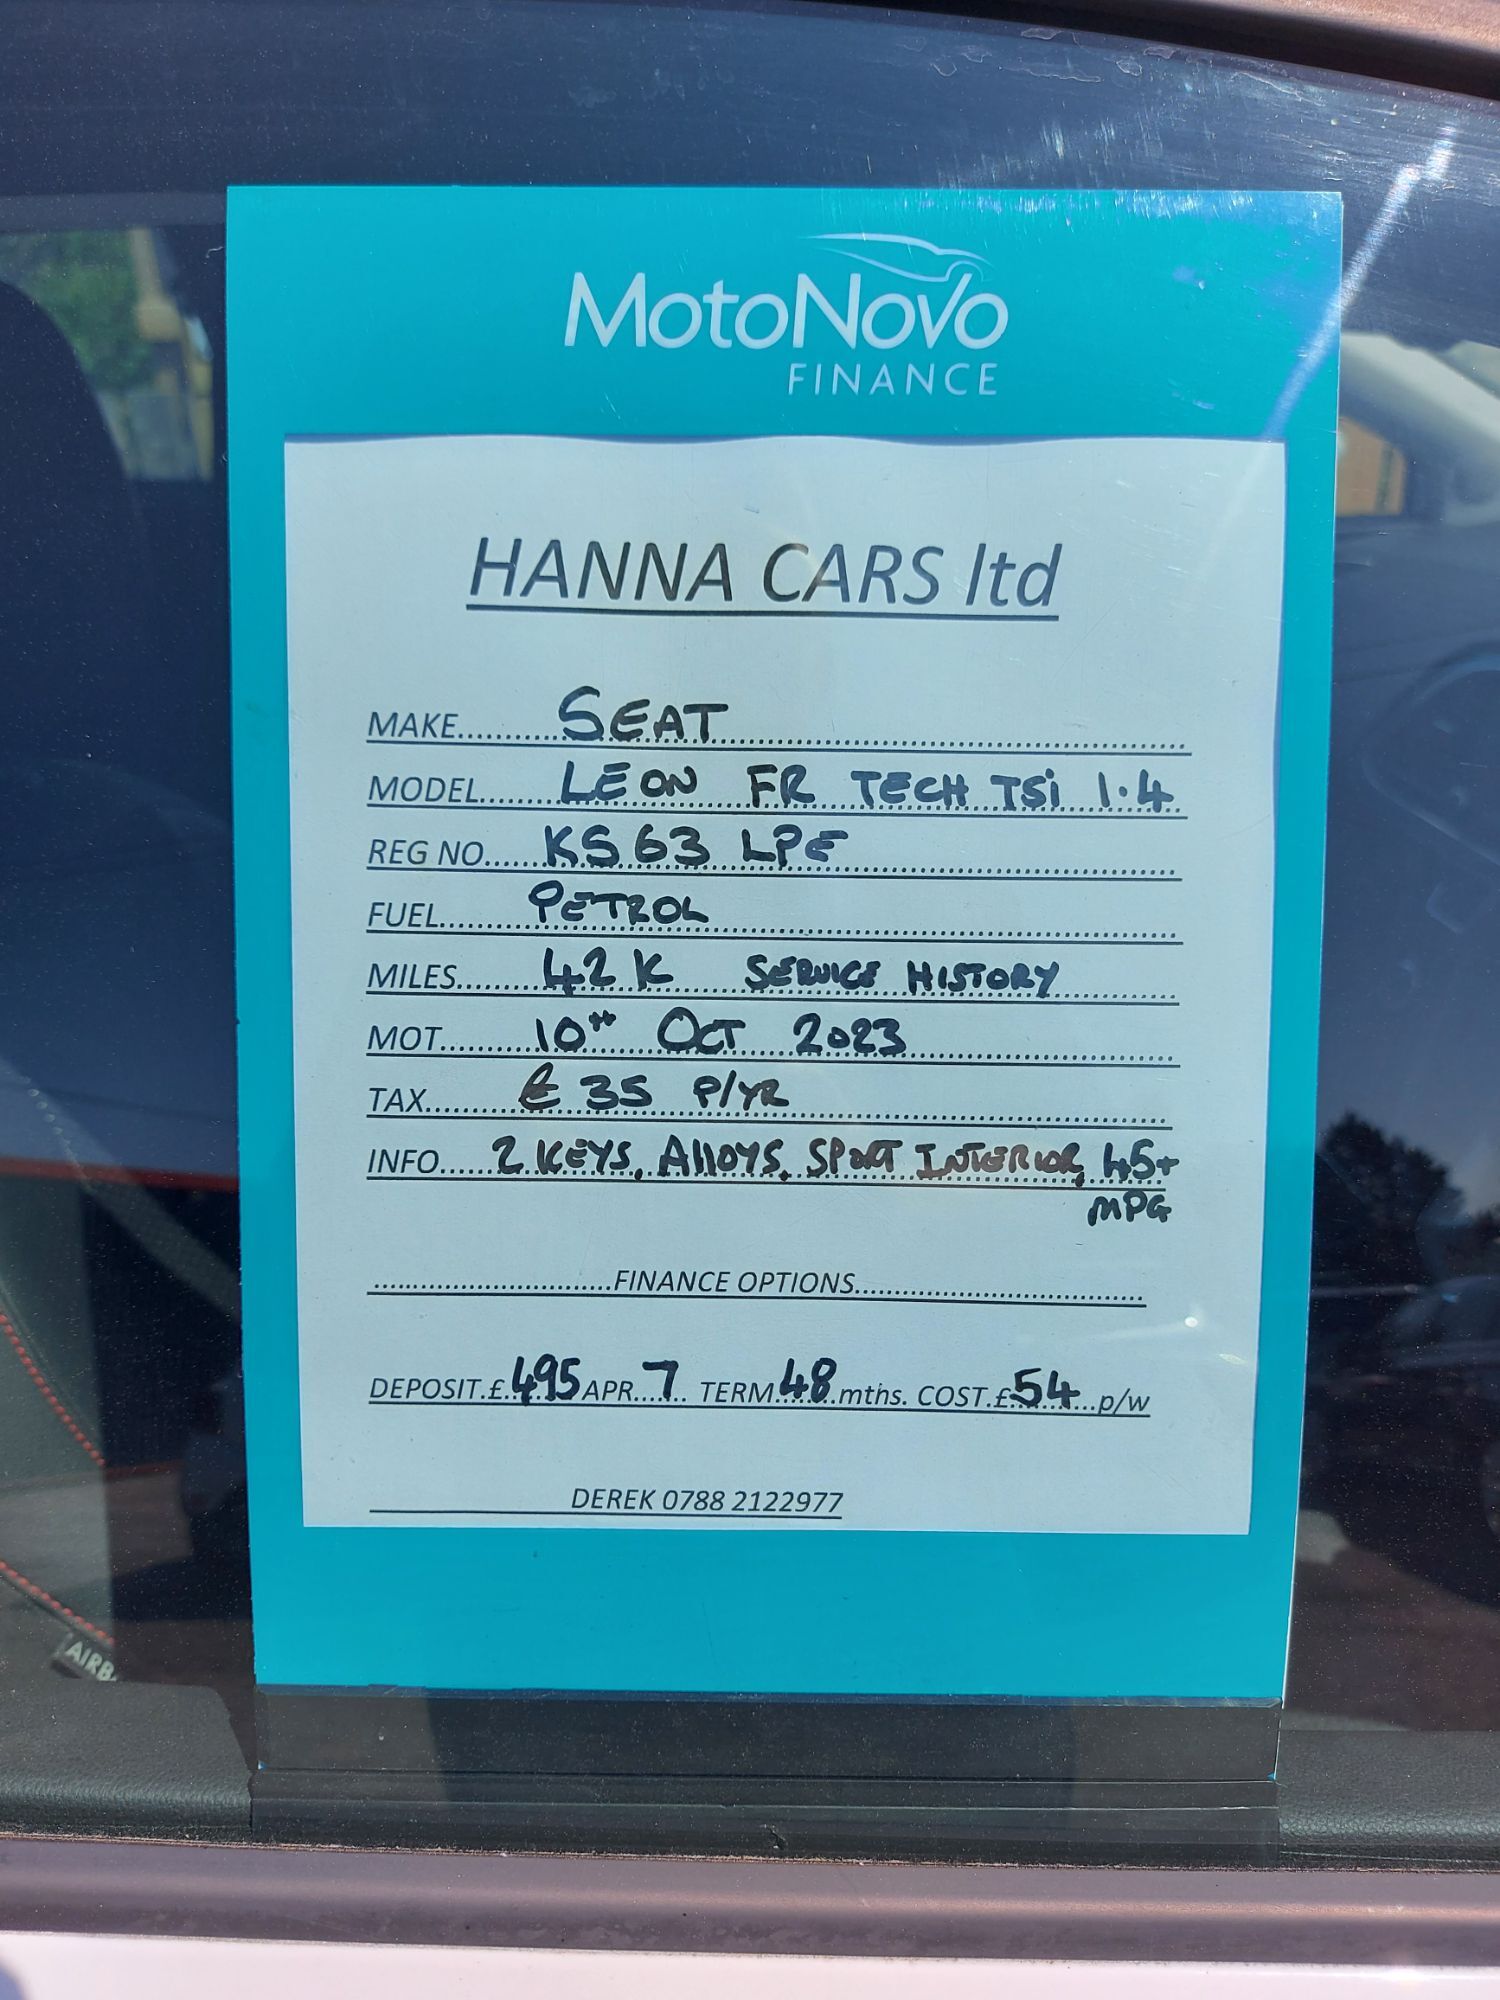 MotoNovo
FINANCE
HANNA CARS ltd
MAKE........SEAT........
MODEL........LEON FR TECH TSi 1.4
REG NO........KS63 LPE........
FUEL........PETROL........
MILES........42K SERVICE HISTORY........
MOT........10th OCT 2023........
TAX........£35 P/YR........
INFO.....2 KEYS, ALLOYS, SPORT INTERIOR, 45+
MPG
........FINANCE OPTIONS........
DEPOSIT.£.495 APR...7.. TERM.48.mths. COST.£.54...p/w
DEREK 0788 2122977